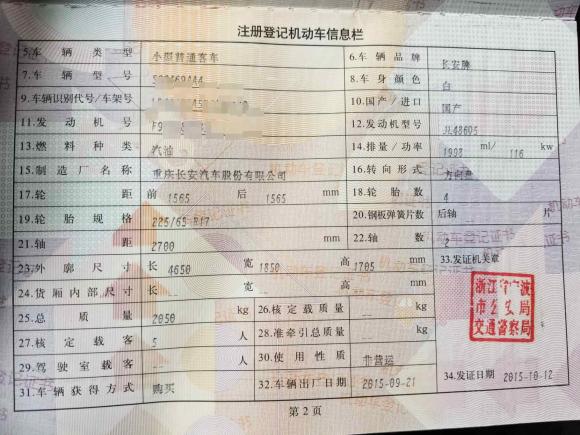 注册登记机动车信息栏
5.车辆类型 小型普通客车 6.车辆品牌 长安牌
7.车辆型号 8.车身颜色 白
9.车辆识别代号/车架号 10.国产/进口 国产
11.发动机号 12.发动机型号 JL486Q5
13.燃料种类 汽油 14.排量/功率 1998 ml/ 116 kw
15.制造厂名称 重庆长安汽车股份有限公司 16.转向形式 方向盘
17.轮距 前 1565 后 1565 mm 18.轮胎数 4
19.轮胎规格 225/65 R17 20.钢板弹簧片数 后轴 片
21.轴距 2700 mm 22.轴数 2
23.外廓尺寸 长 4650 宽 1850 高 1705 mm 33.发证机关章
24.货厢内部尺寸 长 -- 宽 -- 高 -- mm
浙江省宁波
市公安局
交通警察局
25.总质量 2050 kg 26.核定载质量 -- kg
27.核定载客 5 人 28.准牵引总质量 -- kg
29.驾驶室载客 -- 人 30.使用性质 非营运
31.车辆获得方式 购买 32.车辆出厂日期 2015-09-21 34.发证日期 2015-10-12
第2页